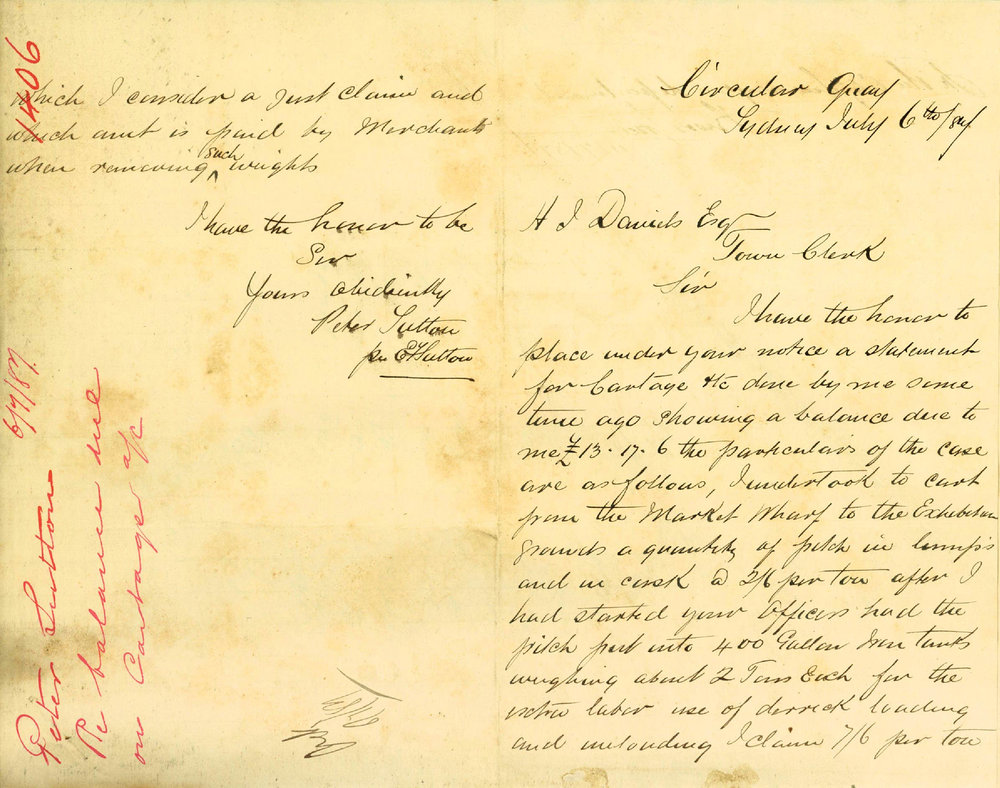 Circular Quay
Sydney July 6th/87
H J Daniels Esq
Town Clerk
Sir
I have the honor to
place under your notice a statement
for Cartage &c done by me some
time ago showing a balance due to
me £13.17.6 the particulars of the case
are as follows, I undertook to cart
from the Market Wharf to the Exhibition
grounds a quantity of pitch in lumps
and in cask @ 2/6 per ton after I
had started your Officers had the
pitch put into 400 Gallon Iron tanks
weighing about 2 Tons Each for the
extra labor use of derrick loading
and unloading I claim 7/6 per ton
which I consider a just claim and
which amt is paid by Merchants
when removing such weights
I have the honor to be
Sir
Yours obidiently
Peter Sutton
per E Sutton
1406
6/7/87
Peter Sutton
Re balance due
on Cartage a/c